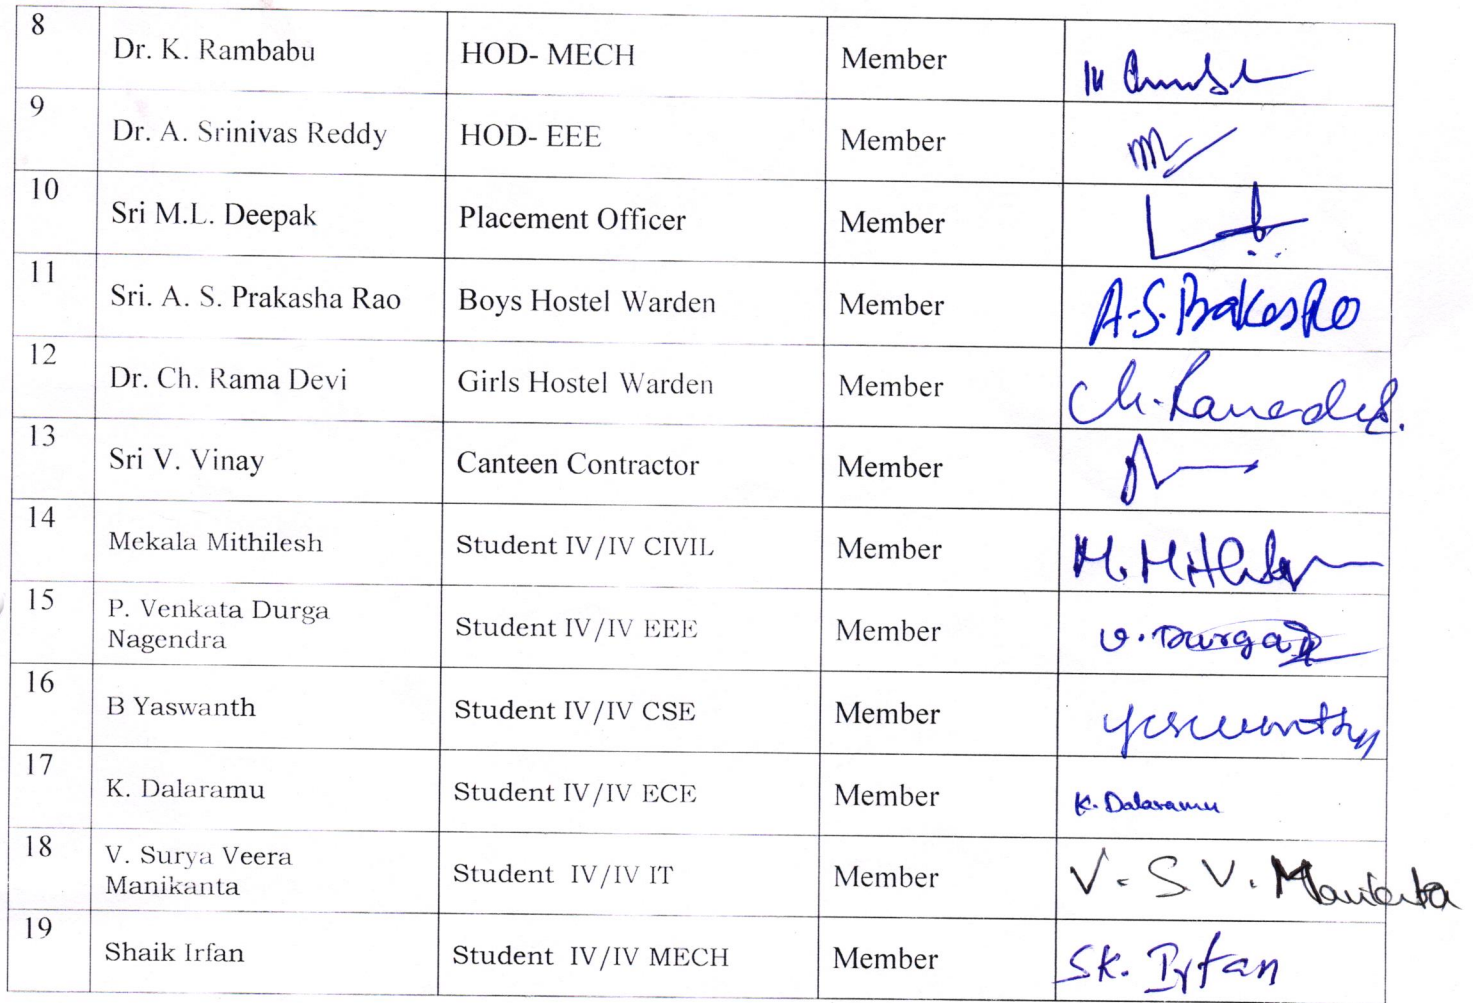 8 Dr. K. Rambabu HOD- MECH Member
9 Dr. A. Srinivas Reddy HOD- EEE Member
10 Sri M.L. Deepak Placement Officer Member
11 Sri. A. S. Prakasha Rao Boys Hostel Warden Member A.S.
12 Dr. Ch. Rama Devi Girls Hostel Warden Member Ch.
13 Sri V. Vinay Canteen Contractor Member
14 Mekala Mithilesh Student IV/IV CIVIL Member M.
15 P. Venkata Durga
Nagendra Student IV/IV EEE Member V. Durga
16 B Yaswanth Student IV/IV CSE Member
17 K. Dalaramu Student IV/IV ECE Member K. Dalaramu
18 V. Surya Veera
Manikanta Student IV/IV IT Member V. S V. Manikanta
19 Shaik Irfan Student IV/IV MECH Member SK. Irfan